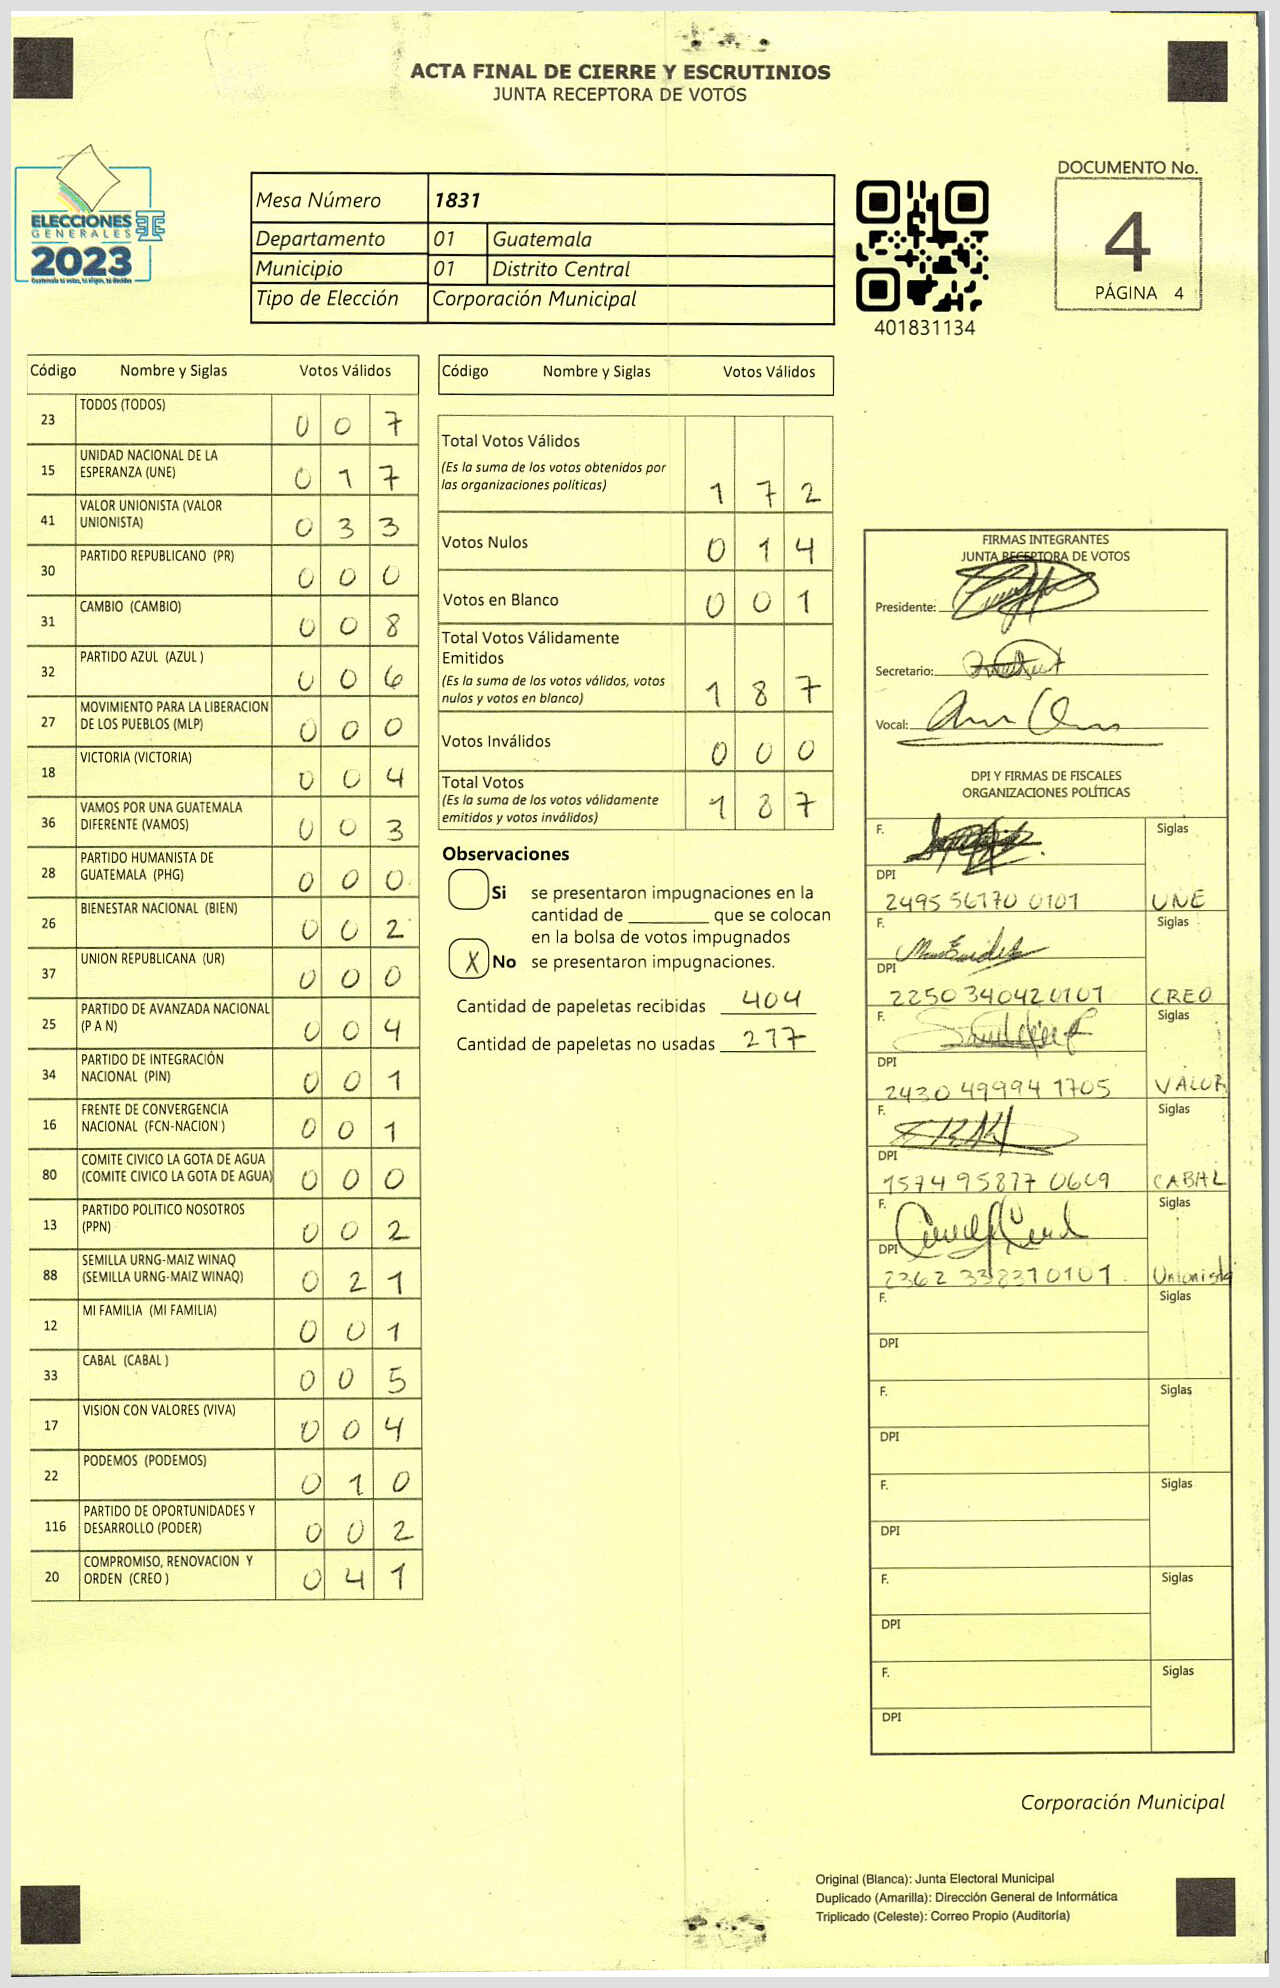 ACTA FINAL DE CIERRE Y ESCRUTINIOS
JUNTA RECEPTORA DE VOTOS
ELECCIONES
GENERALES
2023
Guatemala tú votas, tú eliges, tú decides
Mesa Número 1831
Departamento 01 Guatemala
Municipio 01 Distrito Central
Tipo de Elección Corporación Municipal
401831134
DOCUMENTO No.
4
PÁGINA 4
Código Nombre y Siglas Votos Válidos
23 TODOS (TODOS) 0 0 7
15 UNIDAD NACIONAL DE LA
ESPERANZA (UNE) 0 1 7
41 VALOR UNIONISTA (VALOR
UNIONISTA) 0 3 3
30 PARTIDO REPUBLICANO (PR) 0 0 0
31 CAMBIO (CAMBIO) 0 0 8
32 PARTIDO AZUL (AZUL ) 0 0 6
27 MOVIMIENTO PARA LA LIBERACION
DE LOS PUEBLOS (MLP) 0 0 0
18 VICTORIA (VICTORIA) 0 0 4
36 VAMOS POR UNA GUATEMALA
DIFERENTE (VAMOS) 0 0 3
28 PARTIDO HUMANISTA DE
GUATEMALA (PHG) 0 0 0
26 BIENESTAR NACIONAL (BIEN) 0 0 2
37 UNION REPUBLICANA (UR) 0 0 0
25 PARTIDO DE AVANZADA NACIONAL
(P A N) 0 0 4
34 PARTIDO DE INTEGRACIÓN
NACIONAL (PIN) 0 0 1
16 FRENTE DE CONVERGENCIA
NACIONAL (FCN-NACION ) 0 0 1
80 COMITE CIVICO LA GOTA DE AGUA
(COMITE CIVICO LA GOTA DE AGUA) 0 0 0
13 PARTIDO POLITICO NOSOTROS
(PPN) 0 0 2
88 SEMILLA URNG-MAIZ WINAQ
(SEMILLA URNG-MAIZ WINAQ) 0 2 1
12 MI FAMILIA (MI FAMILIA) 0 0 1
33 CABAL (CABAL ) 0 0 5
17 VISION CON VALORES (VIVA) 0 0 4
22 PODEMOS (PODEMOS) 0 1 0
116 PARTIDO DE OPORTUNIDADES Y
DESARROLLO (PODER) 0 0 2
20 COMPROMISO, RENOVACION Y
ORDEN (CREO ) 0 4 1
Código Nombre y Siglas Votos Válidos
Total Votos Válidos
(Es la suma de los votos obtenidos por
las organizaciones políticas) 1 7 2
Votos Nulos 0 1 4
Votos en Blanco 0 0 1
Total Votos Válidamente
Emitidos
(Es la suma de los votos válidos, votos
nulos y votos en blanco) 1 8 7
Votos Inválidos 0 0 0
Total Votos
(Es la suma de los votos válidamente
emitidos y votos inválidos) 1 8 7
Observaciones
Si se presentaron impugnaciones en la
cantidad de ________ que se colocan
en la bolsa de votos impugnados
X No se presentaron impugnaciones.
Cantidad de papeletas recibidas 404
Cantidad de papeletas no usadas 217
FIRMAS INTEGRANTES
JUNTA RECEPTORA DE VOTOS
Presidente:
Secretario:
Vocal:
DPI Y FIRMAS DE FISCALES
ORGANIZACIONES POLÍTICAS
F. Siglas
DPI
2495 56170 0101 UNE
F. Siglas
DPI
2250 34042 0101 CREO
F. Siglas
DPI
2430 49994 1705 VALOR
F. Siglas
DPI
1574 95877 0609 CABAL
F. Siglas
DPI
2362 33831 0101 Unionista
F. Siglas
DPI
F. Siglas
DPI
F. Siglas
DPI
F. Siglas
DPI
F. Siglas
DPI
Corporación Municipal
Original (Blanca): Junta Electoral Municipal
Duplicado (Amarilla): Dirección General de Informática
Triplicado (Celeste): Correo Propio (Auditoría)